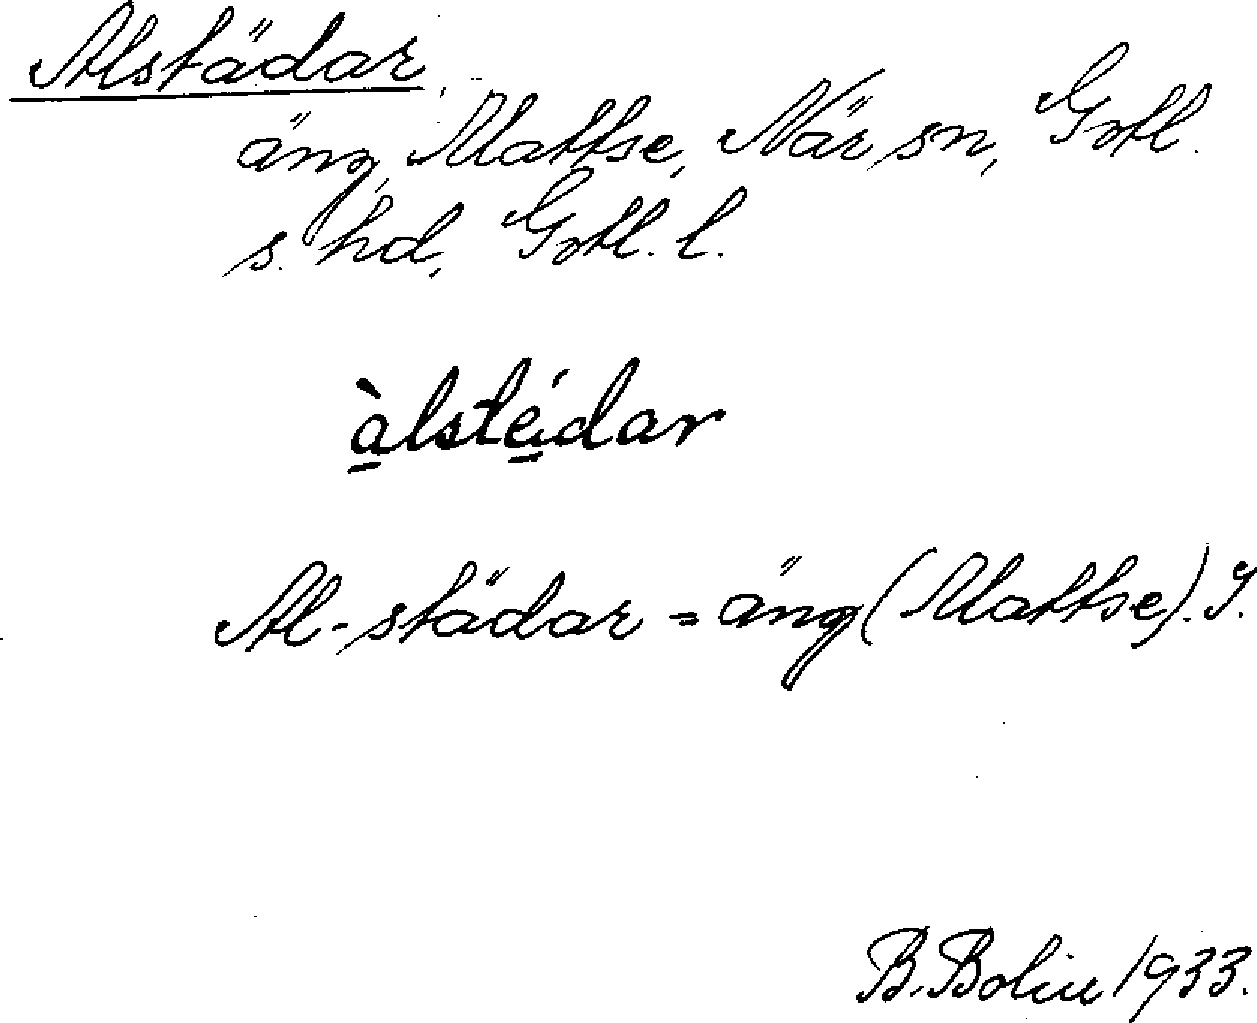 Alstädar
äng, Mattse, När sn, Gotl.
s. hd, Gotl. l.
àlstédar
Al-städar = äng (Mattse). J.
B. Bolin 1933.